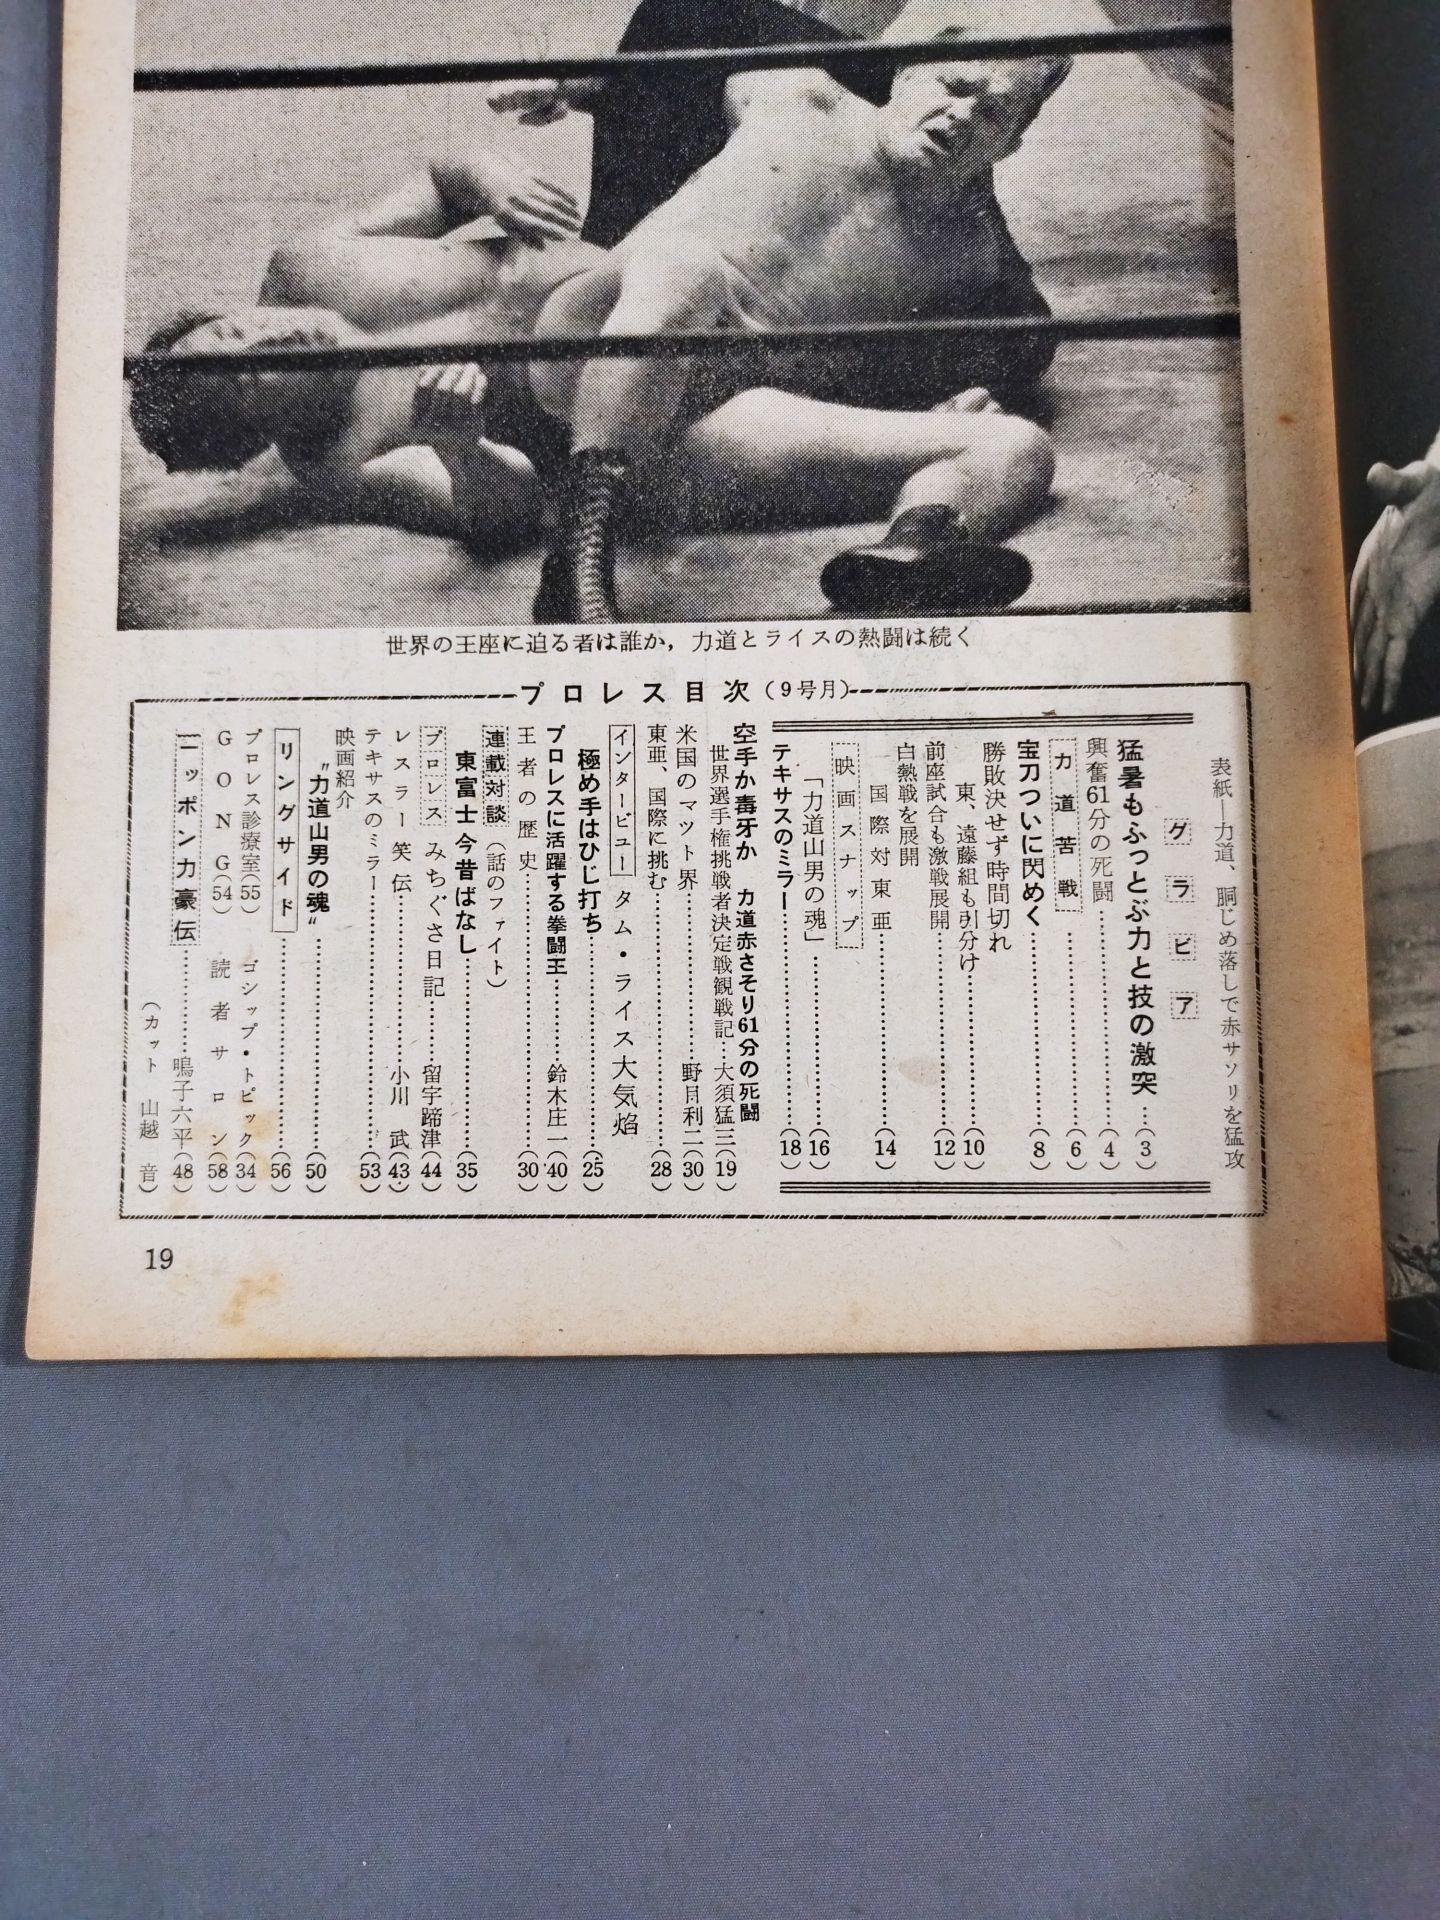 世界の王座に迫る者は誰か,力道とライスの熱闘は続く
プロレス目次(9号月)
表紙―力道、胴じめ落しで赤サソリを猛攻
グラビア
猛暑もふっとぶ力と技の激突…(3)
興奮61分の死闘………(4)
力道苦戦………(6)
宝刀ついに閃めく………(8)
勝敗決せず時間切れ
東、遠藤組も引分け………(10)
前座試合も激戦展開………(12)
白熱戦を展開
国際対東亜………(14)
映画スナップ
「力道山男の魂」………(16)
テキサスのミラー………(18)
空手か毒牙か 力道赤さそり61分の死闘
世界選手権挑戦者決定戦観戦記…大須猛三(19)
米国のマット界………野目利二(30)
東亜、国際に挑む………(28)
インタービュー タム・ライス大気焰
極め手はひじ打ち………(25)
プロレスに活躍する拳闘王………鈴木庄一(40)
王者の歴史………(30)
連載対談(話のファイト)
東富士今昔ばなし………(35)
プロレス みちぐさ日記………留宇蹄津(44)
レスラー笑伝………小川 武(43)
テキサスのミラー………(53)
映画紹介
"力道山男の魂"………(50)
リングサイド………(56)
プロレス診療室(55) ゴシップ・トピック(34)
GONG(54) 読者サロン(58)
ニッポン力豪伝………鳴子六平(48)
(カット 山越 音)
19